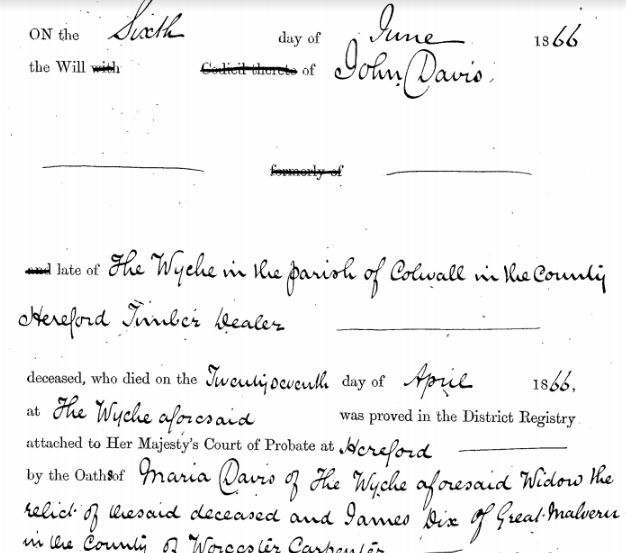 ON the Sixth day of June 1866
the Will with Codicil thereto of John Davis.
formerly of
and late of The Wyche in the parish of Colwall in the County
Hereford Timber Dealer
deceased, who died on the Twentyseventh day of April 1866,
at The Wyche aforesaid was proved in the District Registry
attached to Her Majesty's Court of Probate at Hereford
by the Oaths of Maria Davis of The Wyche aforesaid Widow the
relict of the said deceased and James Dix of Great Malvern
in the County of Worcester Carpenter